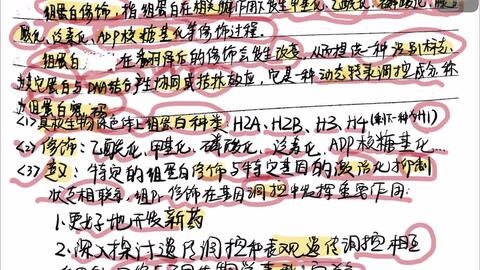 组蛋白修饰:指组蛋白在相关酶作用下发生甲基化、乙酰化、磷酸化、腺
酸化、泛素化、ADP核糖基化等修饰过程.
组蛋白 在 的修饰会发生改变,从而提供一种识别标志,
其它蛋白与DNA结合产生协同或拮抗效应,它是一种动态转录调控成分,称
为组蛋白密码
<1>真核生物染色体上组蛋白种类:H2A、H2B、H3、H4
<2>修饰:乙酰化、甲基化、磷酸化、泛素化、ADP核糖基化……
<3>意义:特定的组蛋白修饰与特定基因的激活化抑制
状态相联系,组Pr修饰在基因调控中发挥重要作用:
1.更好地开发新药
2.深入探讨遗传调控和表观遗传调控相互